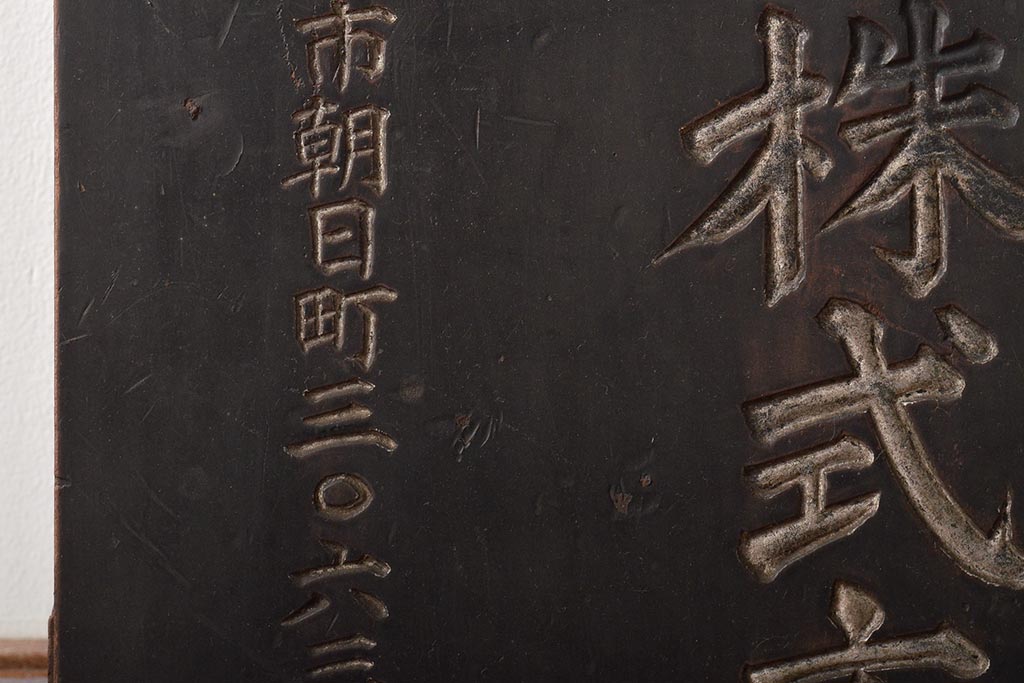 株式
市朝日町三〇六